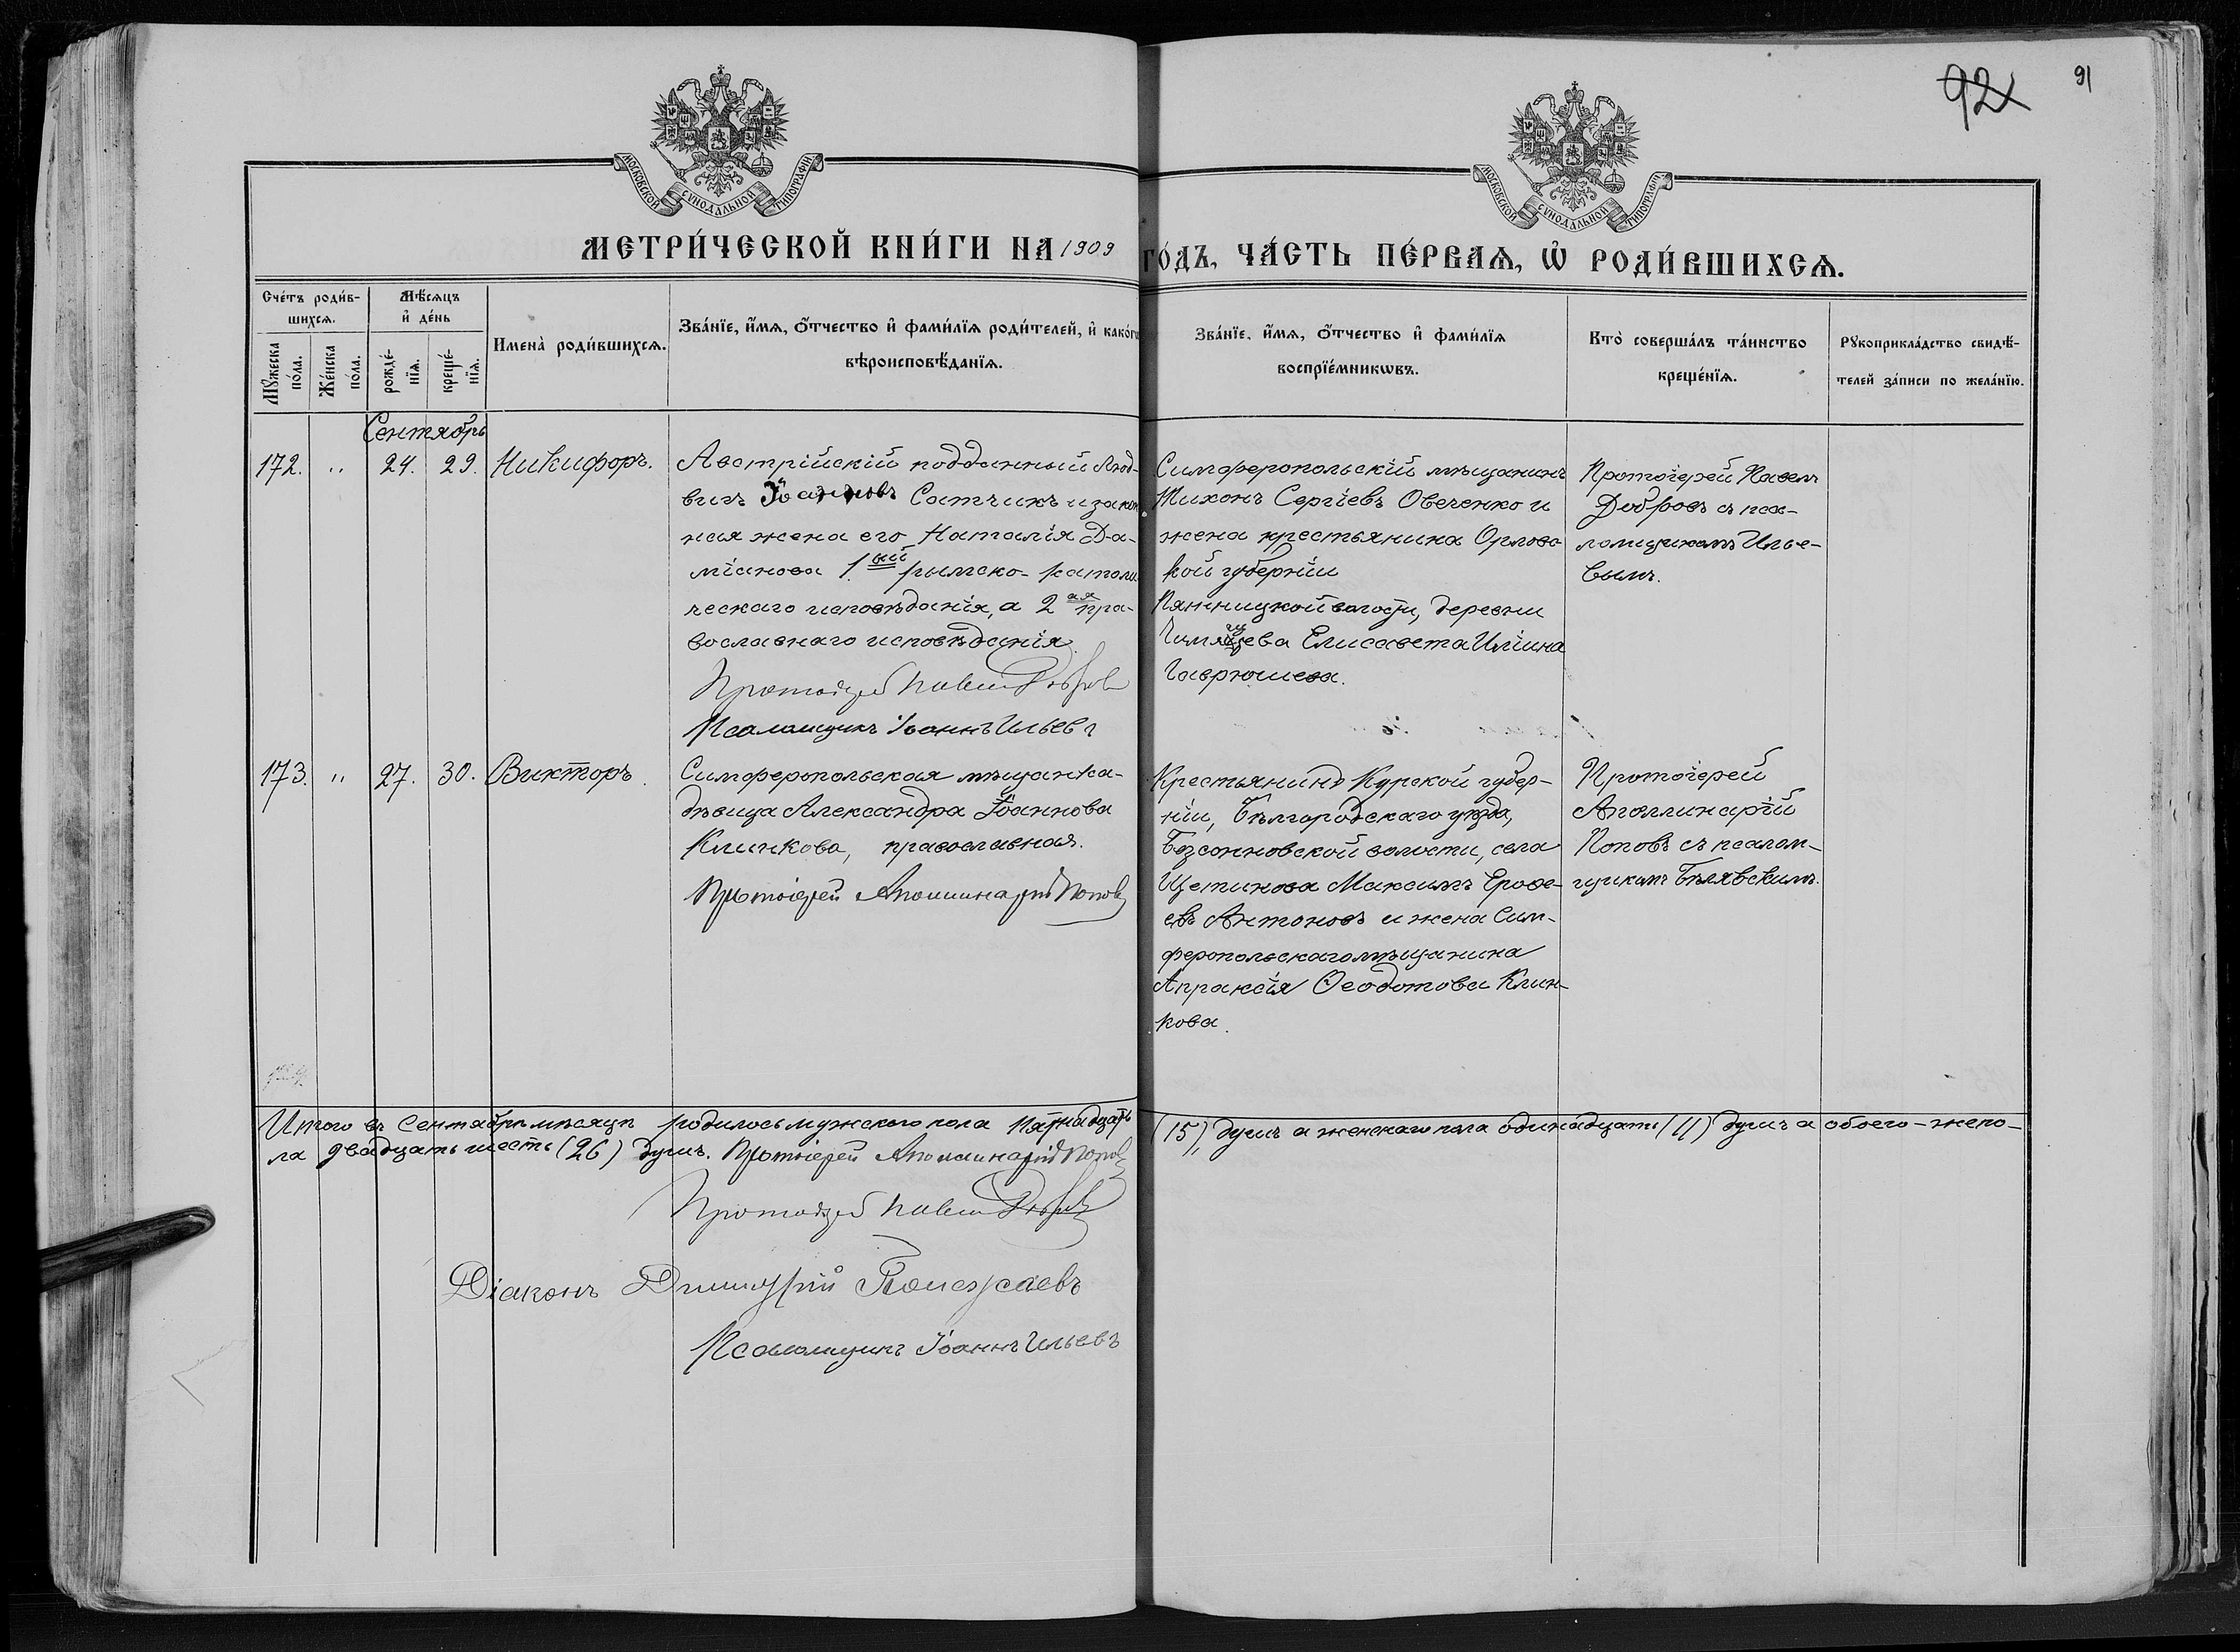 92
91
МОСКОВСКОЙ СѴНОДАЛЬНОЙ ТИПОГРАФІИ
МОСКОВСКОЙ СѴНОДАЛЬНОЙ ТИПОГРАФІИ
МЕТРИ́ЧЕСКОЙ КНИ́ГИ НА 1909 ГО́ДЪ, ЧА́СТЬ ПЕ́РВАѦ, Ѡ҆ РОДИ́ВШИХСѦ.
Сче́тъ роди́в-
шихсѧ.
Мꙋ́жеска по́ла.
Же́нска по́ла.
Мѣ́сѧцъ
и҆ де́нь
рожде́-
нїѧ.
креще́-
нїѧ.
Имена̀ роди́вшихсѧ.
Зва́нїе, и҆́мѧ, ѻ҆́тчество и҆ фами́лїѧ роди́телей, и҆ како́гѡ
вѣроисповѣ́данїѧ.
Зва́нїе, и҆́мѧ, ѻ҆́тчество и҆ фами́лїѧ
воспрїе́мникѡвъ.
Кто̀ соверша́лъ та́инство
креще́нїѧ.
Рꙋкоприкла́дство свидѣ́-
телей за́писи по жела́нїю.
Сентябрь
172. " 24. 29. Никифоръ.
Австрійскій подданный Люд-
вигъ Іоанновъ Сатчикъ и закон
ная жена его Наталія Да-
міанова 1.ый рымско-католи
ческаго исповѣданія, а 2ая пра-
вославнаго исповѣданія.
Протоіерей Павелъ Добровъ
Псаломщикъ Іоаннъ Ильевъ
Симферопольскій мѣщанинъ
Тихонъ Сергіевъ Овеченко и
жена крестьянина Орловс
кой губерніи
волости, деревни
Елисавета Иліина
Гаврюшева.
Протоіерей Павелъ
Добровъ съ пса-
ломщикомъ Илье-
вымъ.
173. " 27. 30. Викторъ.
Симферопольская мѣщанка-
дѣвица Александра Іоаннова
Клинкова, православная.
Протоіерей Аполлинарій Поповъ
Крестьянинъ Курской губер-
ніи, Бѣлгородскаго уѣзда,
Безсонновской волости, села
Щетинова Максимъ Ерофе-
евъ Антоновъ и жена Сим-
феропольскаго мѣщанина
Апраксія Ѳеодотова Клин-
кова.
Протоіерей
Аполлинарій
Поповъ съ псалом-
щикомъ Бѣлявскимъ.
Итого въ Сентябрѣ мѣсяцѣ родилось мужского пола пятнадцать (15), душъ а женскаго пола одинадцать (11) душъ а обоего-же по-
ла двадцать шесть (26) душъ. Протоіерей Аполлинарій Поповъ
Протоіерей Павелъ Добровъ
Діаконъ Димитрій
Псаломщикъ Іоаннъ Ильевъ